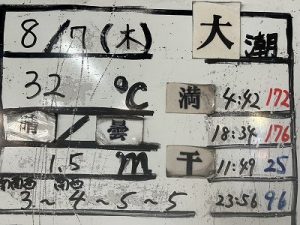 8/7(木) 大潮
32 ℃ 満 4:42 172
晴/曇 18:34 176
1.5 m 干 11:49 25
南南西 南西 23:56 96
3～4～5～5